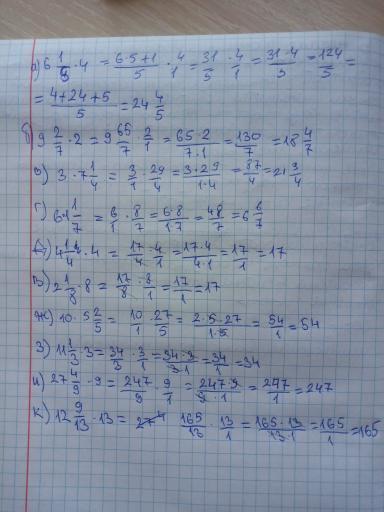 а) 6 1/5 · 4 = 6·5+1/5 · 4/1 = 31/5 · 4/1 = 31·4/5 = 124/5 =
= 4+24+5/5 = 24 4/5
б) 9 2/7 · 2 = 9 65/7 · 2/1 = 65·2/7·1 = 130/7 = 18 4/7
в) 3 · 7 1/4 = 3/1 · 29/4 = 3·29/1·4 = 87/4 = 21 3/4
г) 6·1 1/7 = 6/1 · 8/7 = 6·8/1·7 = 48/7 = 6 6/7
Д) 4 1/4 · 4 = 17/4 · 4/1 = 17·4/4·1 = 17/1 = 17
2 1/8 · 8 = 17/8 · 8/1 = 17/1 = 17
Ж) 10 · 5 2/5 = 10/1 · 27/5 = 2·5·27/1·5 = 54/1 = 54
З) 11 1/3 · 3 = 34/3 · 3/1 = 34·3/3·1 = 34/1 = 34
и) 27 4/9 · 9 = 247/9 · 9/1 = 247·9/9·1 = 247/1 = 247
к) 12 9/13 · 13 = 165/13 · 13/1 = 165·13/13·1 = 165/1 = 165